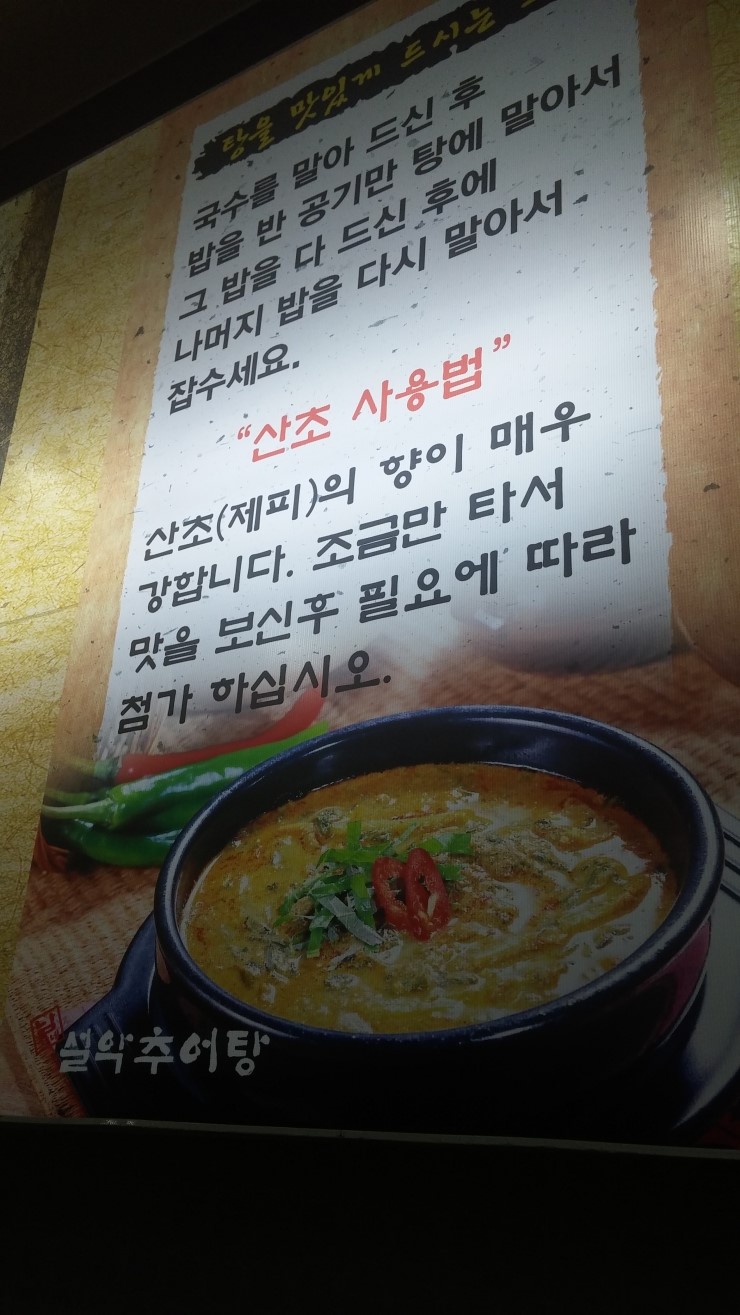 탕을 맛있게 드시는
국수를 말아 드신 후
밥을 반 공기만 탕에 말아서
그 밥을 다 드신 후에
나머지 밥을 다시 말아서
잡수세요.
“산초 사용법”
산초(제피)의 향이 매우
강합니다. 조금만 타서
맛을 보신후 필요에 따라
첨가 하십시오.
설악추어탕